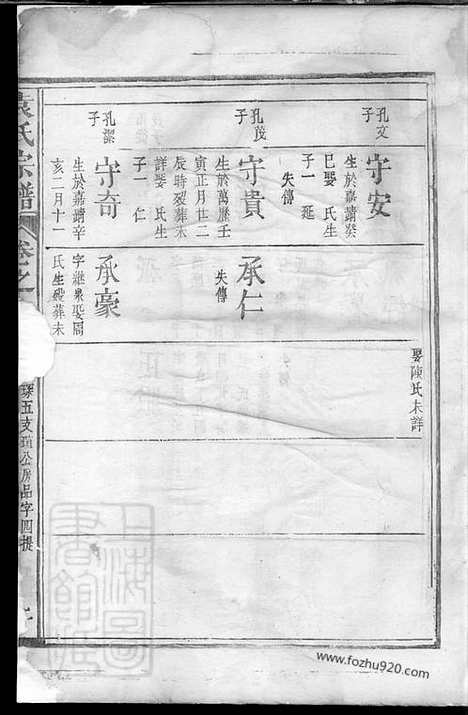 娶陳氏未詳
孔文
子
守安
生於嘉靖癸
巳娶 氏生
子一 延
失傳
孔茂
子
守貴
生於萬曆壬
寅正月廿二
辰時歿葬未
詳娶 氏生
子一 仁
承仁
失傳
孔潔
子
守奇
生於嘉靖辛
亥二月十一
承豪
字繼泉娶周
氏生歿葬未
袁氏宗譜
卷之
五支 公房品字四提
上海圖
書館藏
www.fozhu920.com